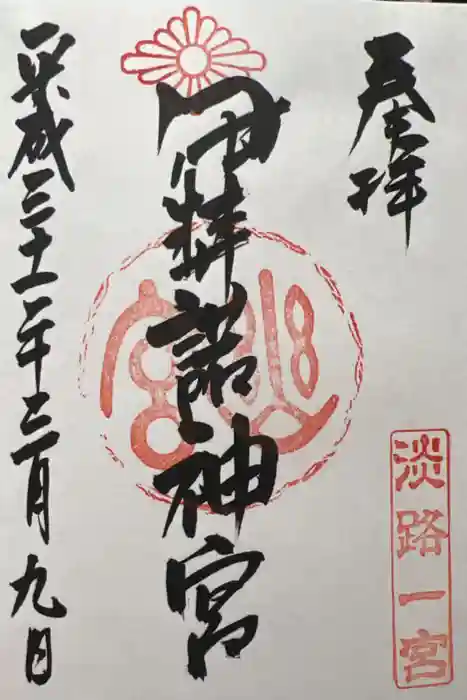 奉拝
淡路一宮
伊弉諾神宮
平成三十一年三月九日